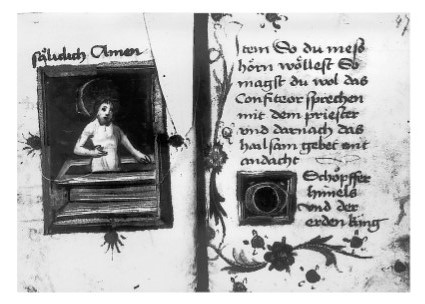 säliclich Amen
47
Item So du mess
hörn wöllest So
magst du wol das
Confiteor sprechen
mit dem priester
vnd darnach das
hailsam gebet mit
andacht
O
Schöpffer
himels
vnd der
erden king